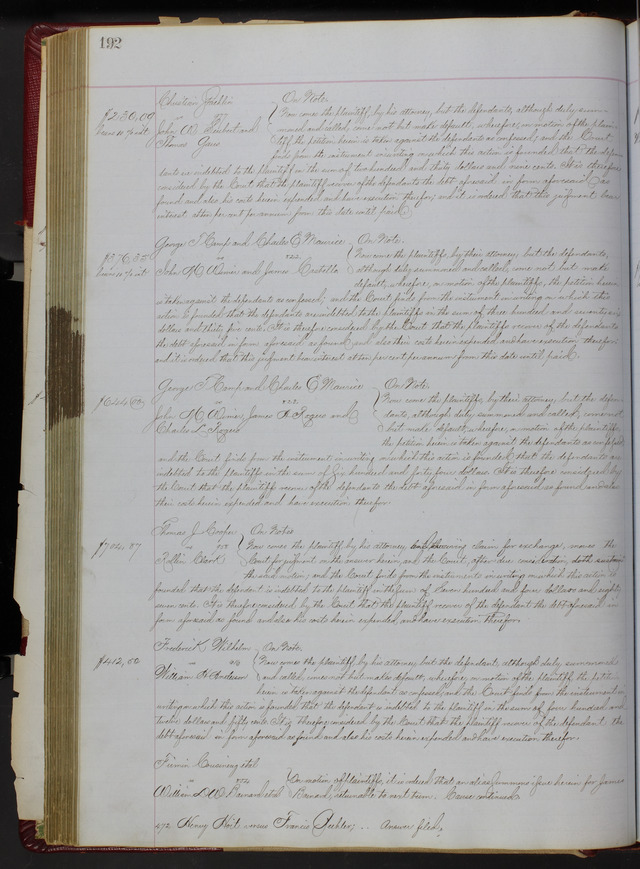 192
Christian
On Note.
$230.09
Now come the plaintiff, by his attorney, but the defendants, although duly sum-
John W. and
moned and called, come not but make default, wherefore, on motion of the plain-
Thomas
tiff, the petition herein is taken against the defendants as confessed, and the Court
finds from the instrument in writing on which this action is founded that the defen-
dants are indebted to the plaintiff in the sum of two hundred and thirty dollars and nine cents. It is therefore
considered by the Court that the plaintiff recover of the defendants the debt aforesaid in form aforesaid so
found and also his costs herein expended and have execution therefor, and it is ordered that this judgment bear
interest at ten per cent per annum from this date until paid.
George T. Camp and Charles E. Maurice
On Note.
$376.35
vs
Now come the plaintiffs, by their attorney, but the defendants,
John M. and James Costello
although duly summoned and called, come not but make
default, wherefore, on motion of the plaintiffs, the petition herein
is taken against the defendants as confessed, and the Court finds from the instrument in writing on which this
action is founded that the defendants are indebted to the plaintiffs in the sum of three hundred and seventy six
dollars and thirty five cents. It is therefore considered by the Court that the plaintiffs recover of the defendants
the debt aforesaid in form aforesaid so found and also their costs herein expended, and have execution therefor
and it is ordered that this judgment bear interest at ten per cent per annum from this date until paid.
George T. Camp and Charles E. Maurice
On Note.
$644.00
vs
Now come the plaintiffs, by their attorney, but the defen-
John M. James F. Rogers and
dants, although duly summoned and called, come not
Charles L. Rogers
but make default, wherefore, on motion of the plaintiffs,
the petition herein is taken against the defendants as confessed
and the Court finds from the instrument in writing on which this action is founded that the defendants are
indebted to the plaintiffs in the sum of Six hundred and forty four dollars. It is therefore considered by
the Court that the plaintiffs recover of the defendants the debt aforesaid in form aforesaid so found and also
their costs herein expended and have execution therefor.
Thomas J. Cooper
On Notes
$704.87
vs
Now comes the plaintiff by his attorney, claim for exchange, moves the
Clark
Court for judgment on the answer herein, and the Court, after due consideration, doth sustain
the said motion, and the Court finds from the instruments in writing on which this action is
founded that the defendant is indebted to the plaintiff in the sum of Seven hundred and four dollars and eighty
seven cents. It is therefore considered by the Court that the plaintiff recover of the defendant the debt aforesaid in
form aforesaid so found and also his costs herein expended, and have execution therefor.
Frederick Wilhelm
On Note
$412.50
vs
Now comes the plaintiff by his attorney but the defendant, although duly summoned
William H. Anderson
and called, comes not but makes default, wherefore, on motion of the plaintiff, the petition
herein is taken against the defendant as confessed, and the Court finds from the instrument in
writing on which this action is founded that the defendant is indebted to the plaintiff in the sum of four hundred and
twelve dollars and fifty cents. It is therefore considered by the Court that the plaintiff recover of the defendant the
debt aforesaid in form aforesaid so found and also his costs herein expended and have execution therefor.
Firmin et al
vs
On motion of plaintiffs, it is ordered that an alias summons issue herein for James
William D. W. Barnard et al
Barnard, returnable to next term. Cause continued.
Henry versus Francis Answer filed.